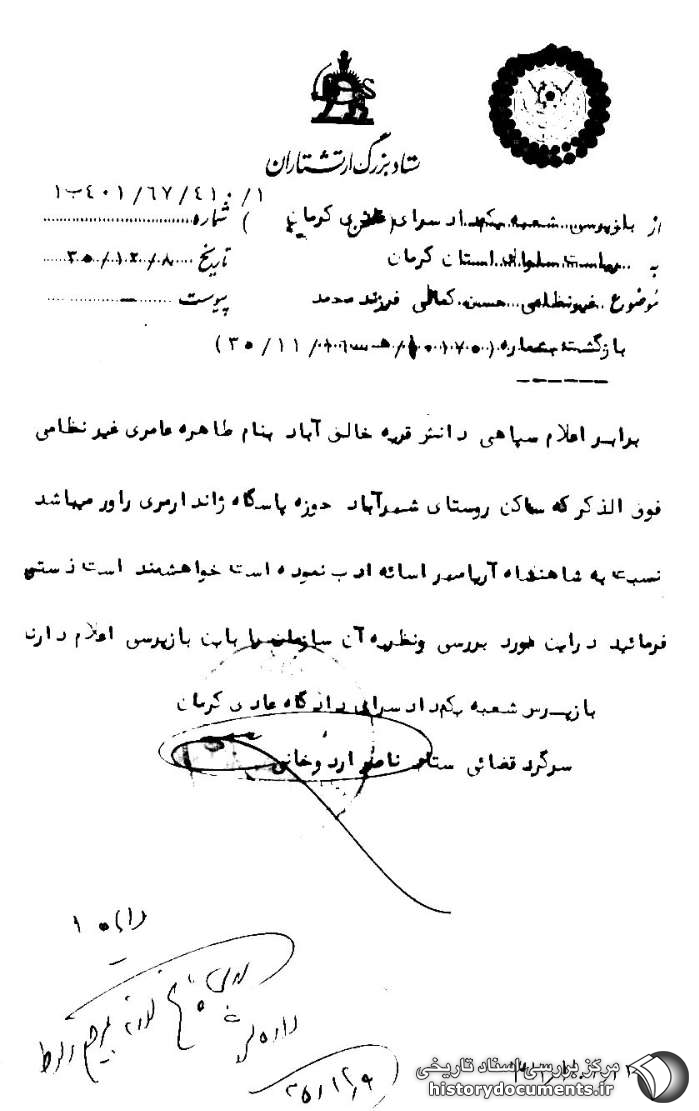 ستاد بزرگ ارتشتاران
از بازپرس شعبه یکم دادسرای عادی کرمان ) شماره ۴۰۱/۶۷/۴۱۰/۱ب۱
به ریاست سازمان استان کرمان تاریخ ۳۵/۱۲/۸
موضوع غیرنظامی حسین کمالی فرزند محمد پیوست
بازگشت بشماره ۳۵/۱۱/
برابر اعلام سپاهی دانش قریه خالق آباد بنام طاهره عامری غیر نظامی
فوق الذکر که ساکن روستای شهرآباد حوزه پاسگاه ژاندارمری راور میباشد
نسبت به شاهنشاه آریامهر اسائه ادب نموده است خواهشمند است دستور
فرمائید در این مورد بررسی ونظریه آن سازمان را باین بازپرسی اعلام دارند
بازپرس شعبه یکم دادسرای دادگاه عادی کرمان
سرگرد قضائی ستاد ناصر اردوخانی
۳۵/۱۲/۹
مرکز بررسی اسناد تاریخی
historydocuments.ir